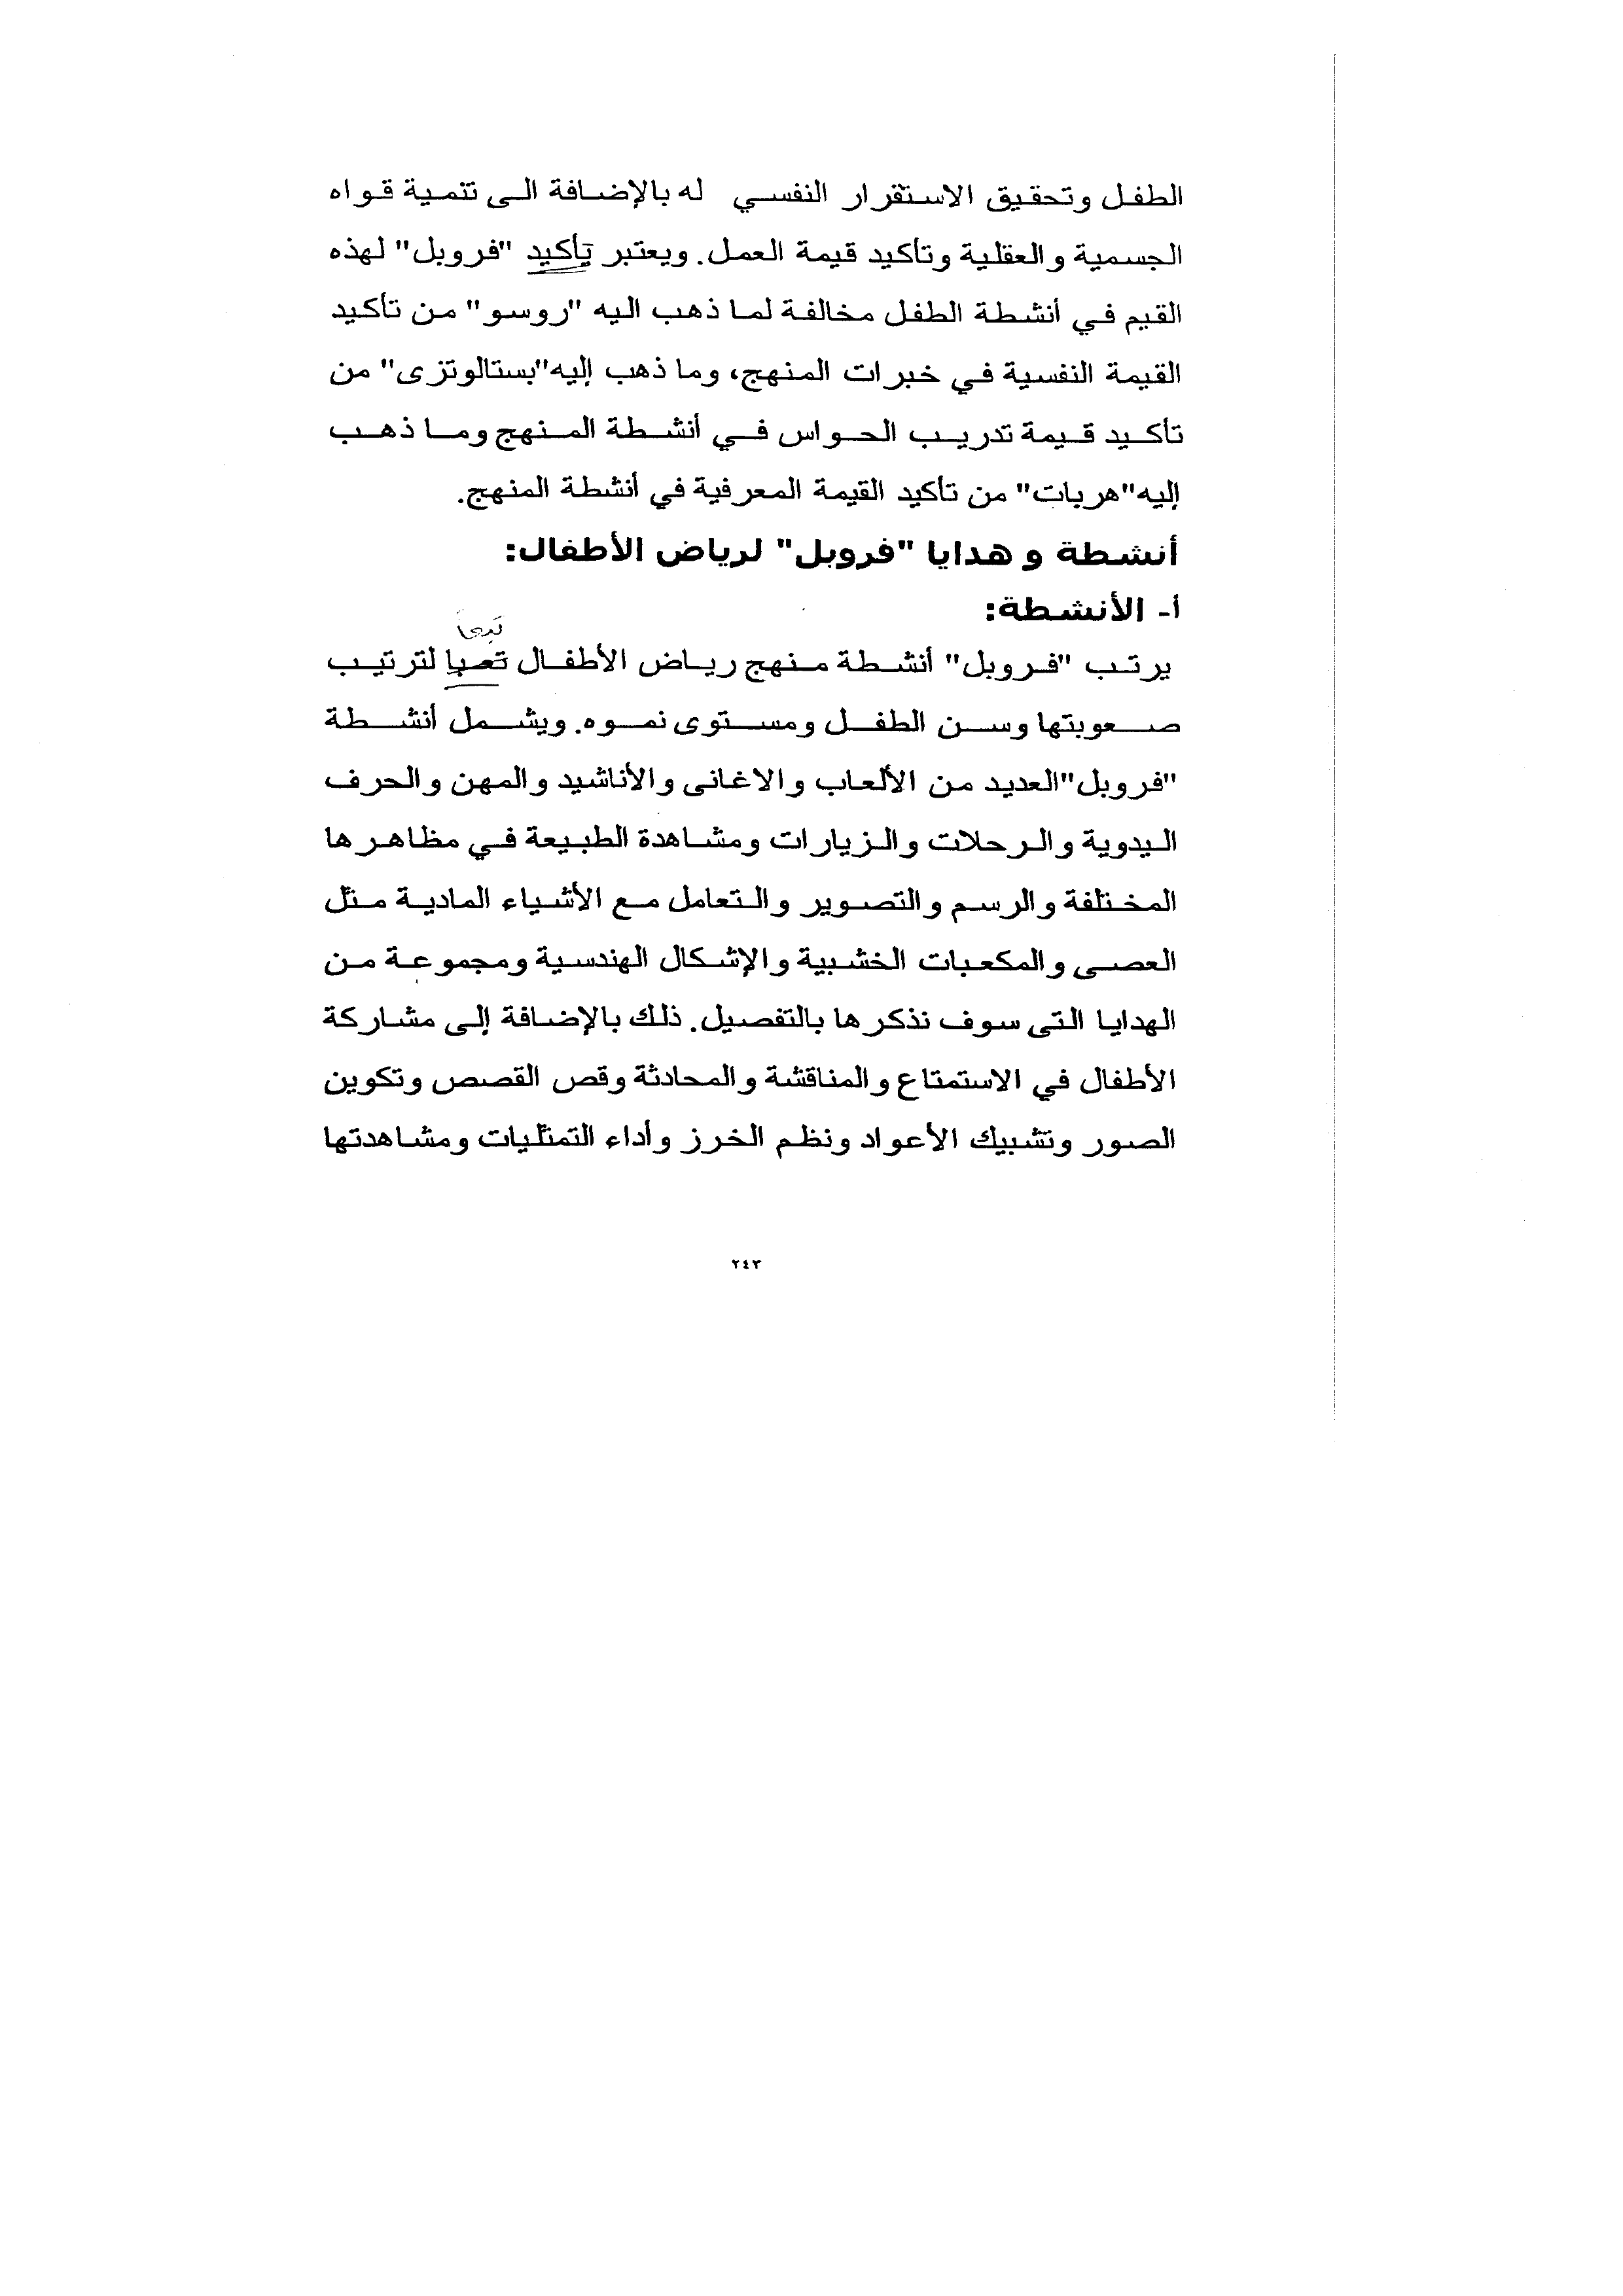 الطفل وتحقيق الاستقرار النفسي له بالإضافة الى تنمية قواه
الجسمية والعقلية وتأكيد قيمة العمل. ويعتبر تأكيد "فروبل" لهذه
القيم في أنشطة الطفل مخالفة لما ذهب اليه "روسو" من تأكيد
القيمة النفسية في خبرات المنهج، وما ذهب إليه"بستالوتزى" من
تأكيد قيمة تدريب الحواس في أنشطة المنهج وما ذهب
إليه"هربات" من تأكيد القيمة المعرفية في أنشطة المنهج.
أنشطة و هدايا "فروبل" لرياض الأطفال:
أ- الأنشطة:
تبعاً
يرتب "فروبل" أنشطة منهج رياض الأطفال تعبا لترتيب
صعوبتها وسن الطفل ومستوى نموه. ويشمل أنشطة
"فروبل"العديد من الألعاب والاغانى والأناشيد والمهن والحرف
اليدوية والرحلات والزيارات ومشاهدة الطبيعة في مظاهرها
المختلفة والرسم والتصوير والتعامل مع الأشياء المادية مثل
العصى والمكعبات الخشبية والإشكال الهندسية ومجموعة من
الهدايا التى سوف نذكرها بالتفصيل. ذلك بالإضافة إلى مشاركة
الأطفال في الاستمتاع والمناقشة والمحادثة وقص القصص وتكوين
الصور وتشبيك الأعواد ونظم الخرز وأداء التمثليات ومشاهدتها
٢٤٣